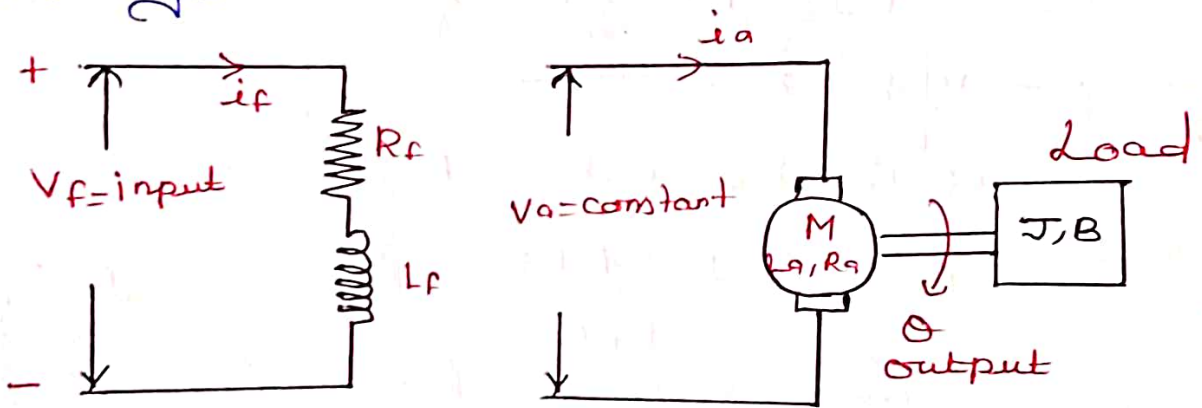 +
if
Rf
Vf=input
Lf
-
ia
Va=constant
M
La, Ra
Load
J,B
θ
output